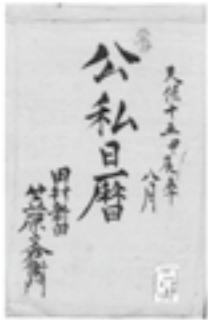 天保十五甲辰年
八月
公私日暦
田村新田
笠原